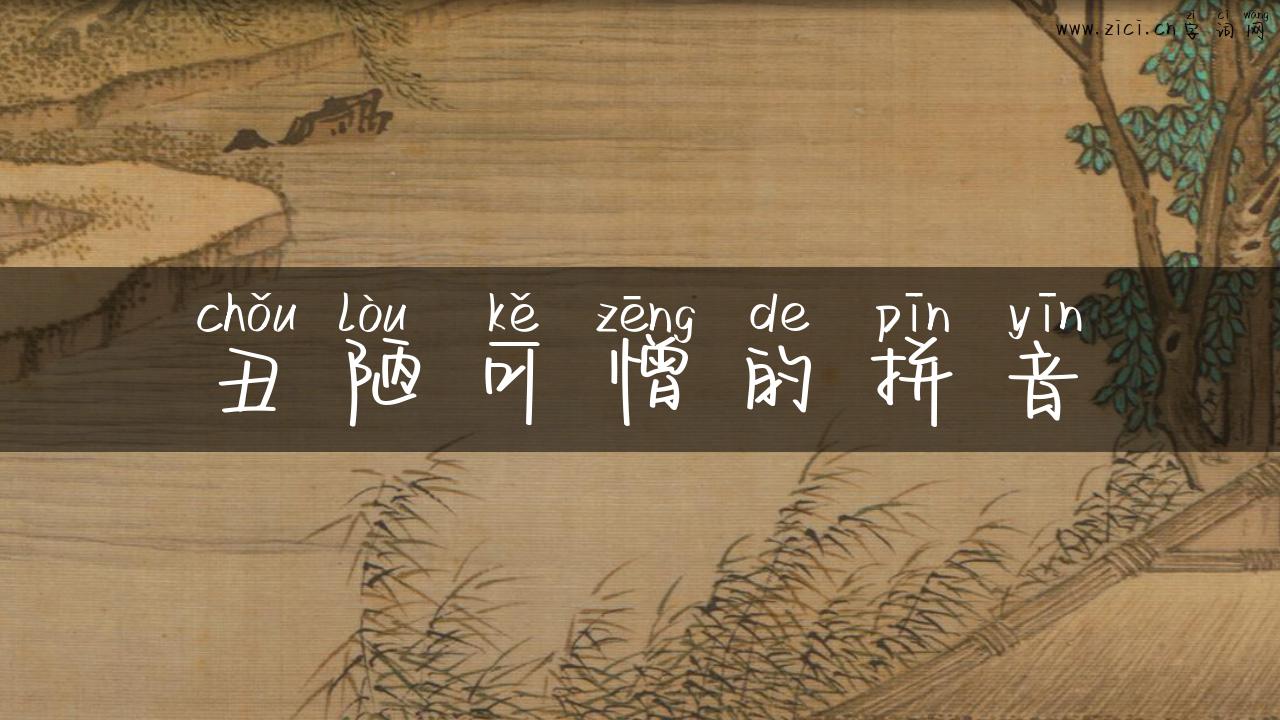 zì cí wǎng
www.zici.cn字词网
chǒu lòu kě zēng de pīn yīn
丑陋可憎的拼音